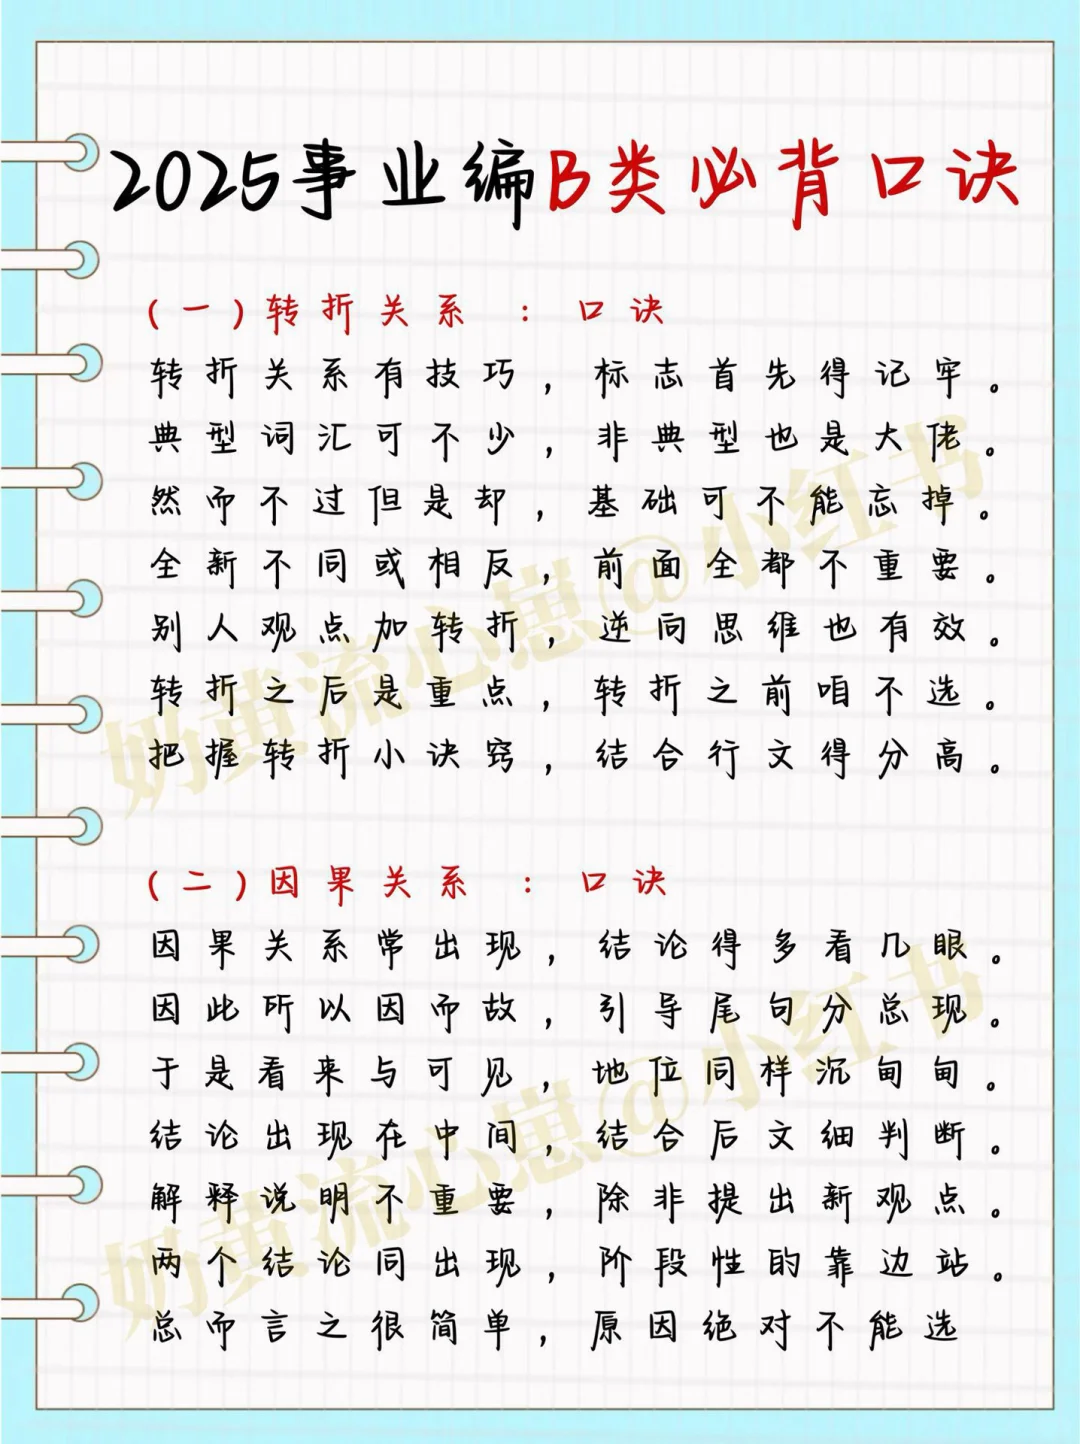 2025事业编B类必背口诀
(一)转折关系：口诀
转折关系有技巧，标志首先得记牢。
典型词汇可不少，非典型也是大佬。
然而不过但是却，基础可不能忘掉。
全新不同或相反，前面全都不重要。
别人观点加转折，逆向思维也有效。
转折之后是重点，转折之前咱不选。
把握转折小诀窍，结合行文得分高。
(二)因果关系：口诀
因果关系常出现，结论得多看几眼。
因此所以因而故，引导尾句分总现。
于是看来与可见，地位同样沉甸甸。
结论出现在中间，结合后文细判断。
解释说明不重要，除非提出新观点。
两个结论同出现，阶段性的靠边站。
总而言之很简单，原因绝对不能选
奶黄流心崽@小红书
奶黄流心崽@小红书